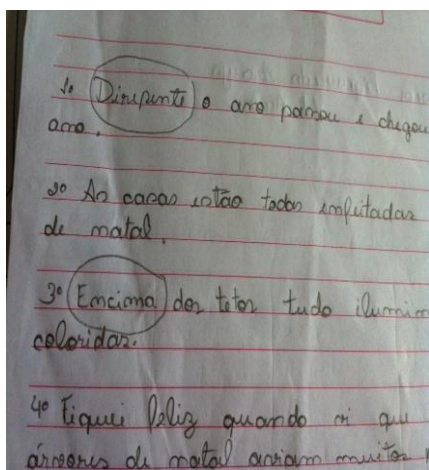 1º Diripente o ano passou e chegou
ano.
2º As casas estão todas enfeitadas
de natal.
3º Emcima dos tetos tudo ilumin
coloridas.
4º Fiquei feliz quando vi que
árvores de natal aviam muitos